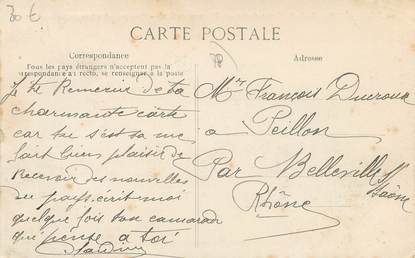 30 €
CARTE POSTALE
Correspondance
Tous les pays étrangers n'acceptent pas la
correspondance au recto, se renseigner à la poste
Adresse
Je te Remercie de ta
charmante carte
car tu s'est sa me
fait bien plaisir de
Recevoir des nouvelles
du pays. écrit moi
quelque fois ton camarade
que pense a toi
Mr François Ducroux
a Peillon
Par Belleville s/
Saône
Rhône